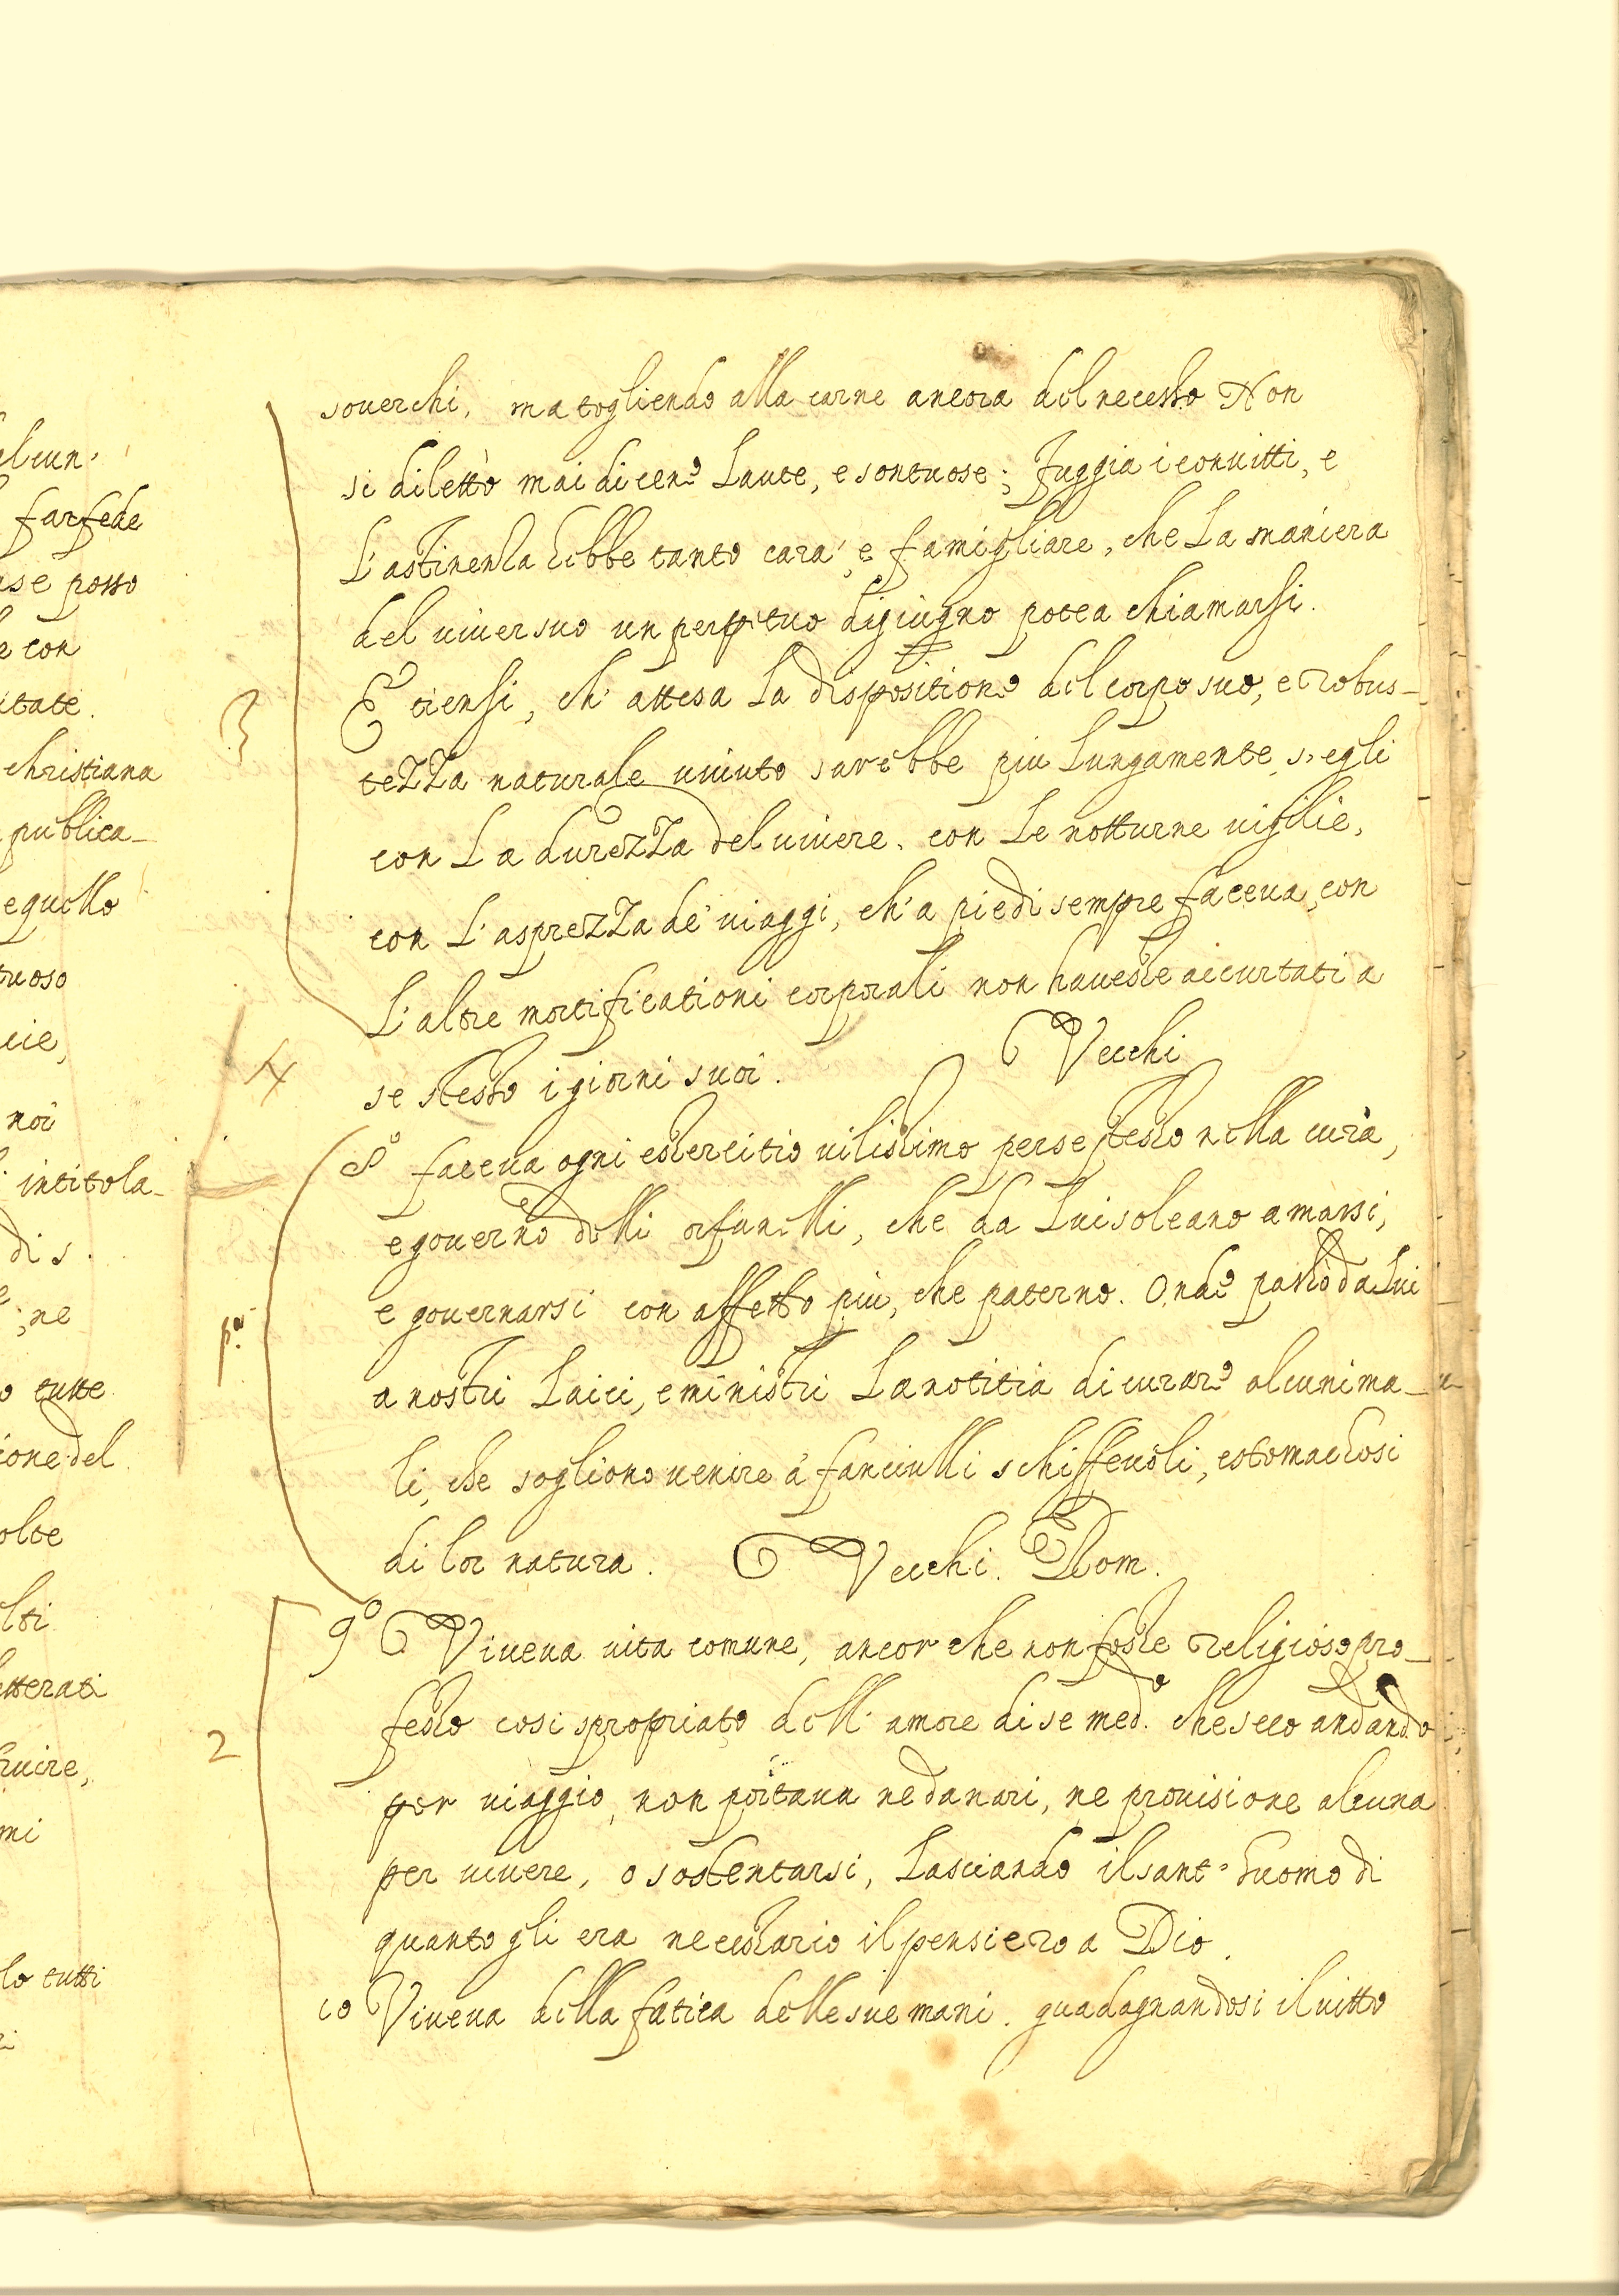 elcun.
far fede
se posso
e con
itate.
christiana
publica-
equello
tuoso
cie,
noi
intitola-
di s.
; ne
o tutte
ione del
olte
lti
etterati
ruire,
mi
lo tutti
souerchi, ma togliendo alla carne ancora del necesso Non
si dilettò mai di cene Laute, e sontuose; fuggia i conuitti, e
L'astinenza hebbe tanto cara, e famigliare, che La maniera
del uiuer suo un perpetuo digiugno potea chiamarsi.
3
E tiensi, ch' attesa la dispositione del corpo suo, e robus-
tezza naturale uiuuto sarebbe piu Lungamente, s'egli
con La durezza del uiuere, con Le notturne uigilie,
con L'asprezza de' uiaggi, ch' a piedi sempre faceua, con
L'altre mortificationi corporali non hauesse accurtati a
se stesso i giorni suoi. Vecchi
4
8º faceua ogni essercitio uilissimo per se stesso nella cura,
e gouerno delli orfanelli, che da Lui soleano amarsi,
e gouernarsi con affetto più, che paterno. Onde passò da Lui
pª
a nostri Laici, e ministri La notitia di curare alcuni ma-
li, che sogliono uenire a' fanciulli schiffeuoli, e stomachosi
di lor natura. Vecchi. Rom.
9º Viueua uita comune, ancor che non fosse religioso pro-
2
fesso cosi spropriato dell' amore di se medº. che seco andando
per uiaggio, non portaua ne danari, ne prouisione alcuna
per uiuere, o sostentarsi, Lasciando il sant' huomo di
quanto gli era necessario il pensiero a Dio.
10 Viueua della fatica delle sue mani. guadagnandosi il uitto